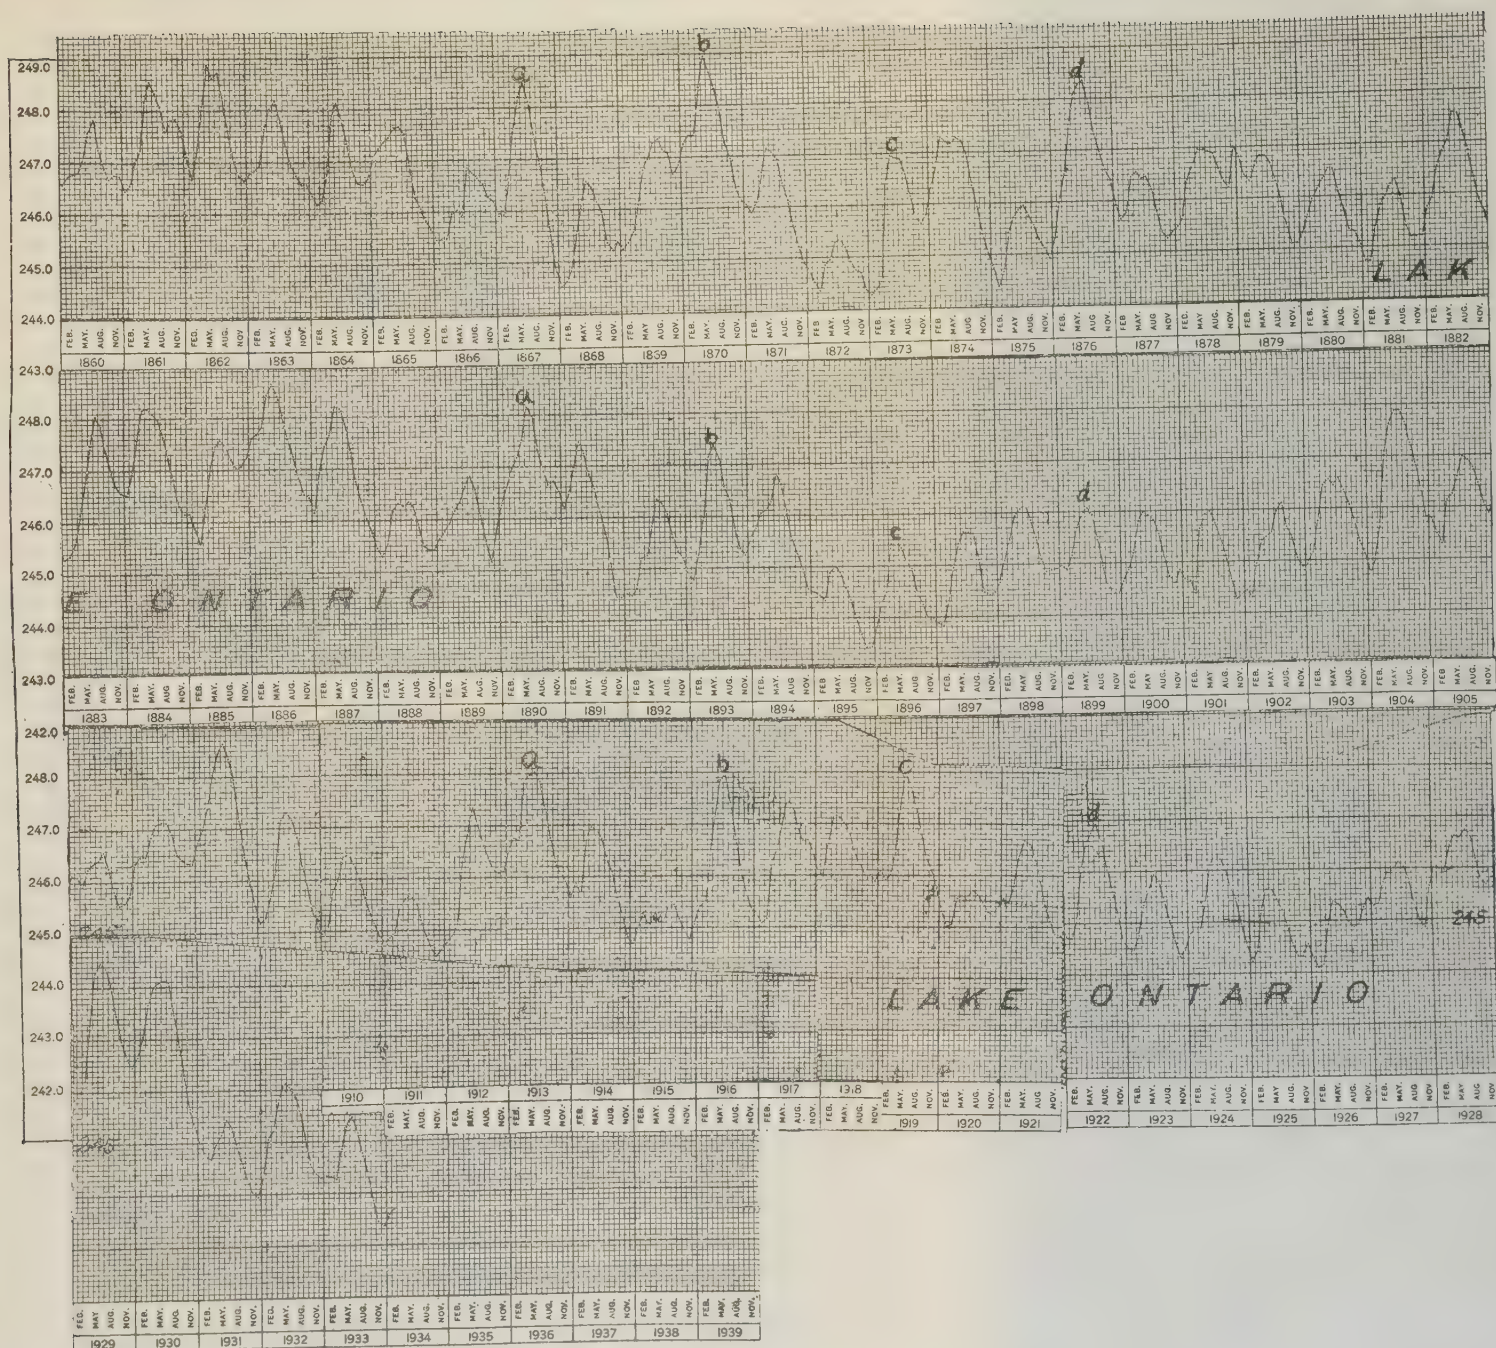 a b c d
249.0
248.0
247.0
246.0
245.0
244.0
LAK
FEB. MAY. AUG. NOV.
1860 1861 1862 1863 1864 1865 1866 1867 1868 1839 1870 1871 1872 1873 1874 1875 1876 1877 1878 1879 1880 1881 1882
243.0
a b c d
248.0
247.0
246.0
245.0
244.0
243.0
E ONTARIO
FEB. MAY. AUG. NOV.
1883 1884 1885 1836 1887 1888 1889 1890 1891 1892 1893 1894 1895 1896 1897 1898 1899 1900 1901 1902 1903 1904 1905
242.0
a b c d
248.0
247.0
246.0
245.0
245
244.0
243.0
242.0
LAKE ONTARIO
1910 1911 1912 1913 1914 1915 1916 1917 19:8
FEB. MAY. AUG. NOV.
1919 1920 1921 1922 1923 1924 1925 1926 1927 1928
FEB. MAY AUG. NOV.
1929 1930 1931 1932 1933 1934 1935 1936 1937 1938 1939